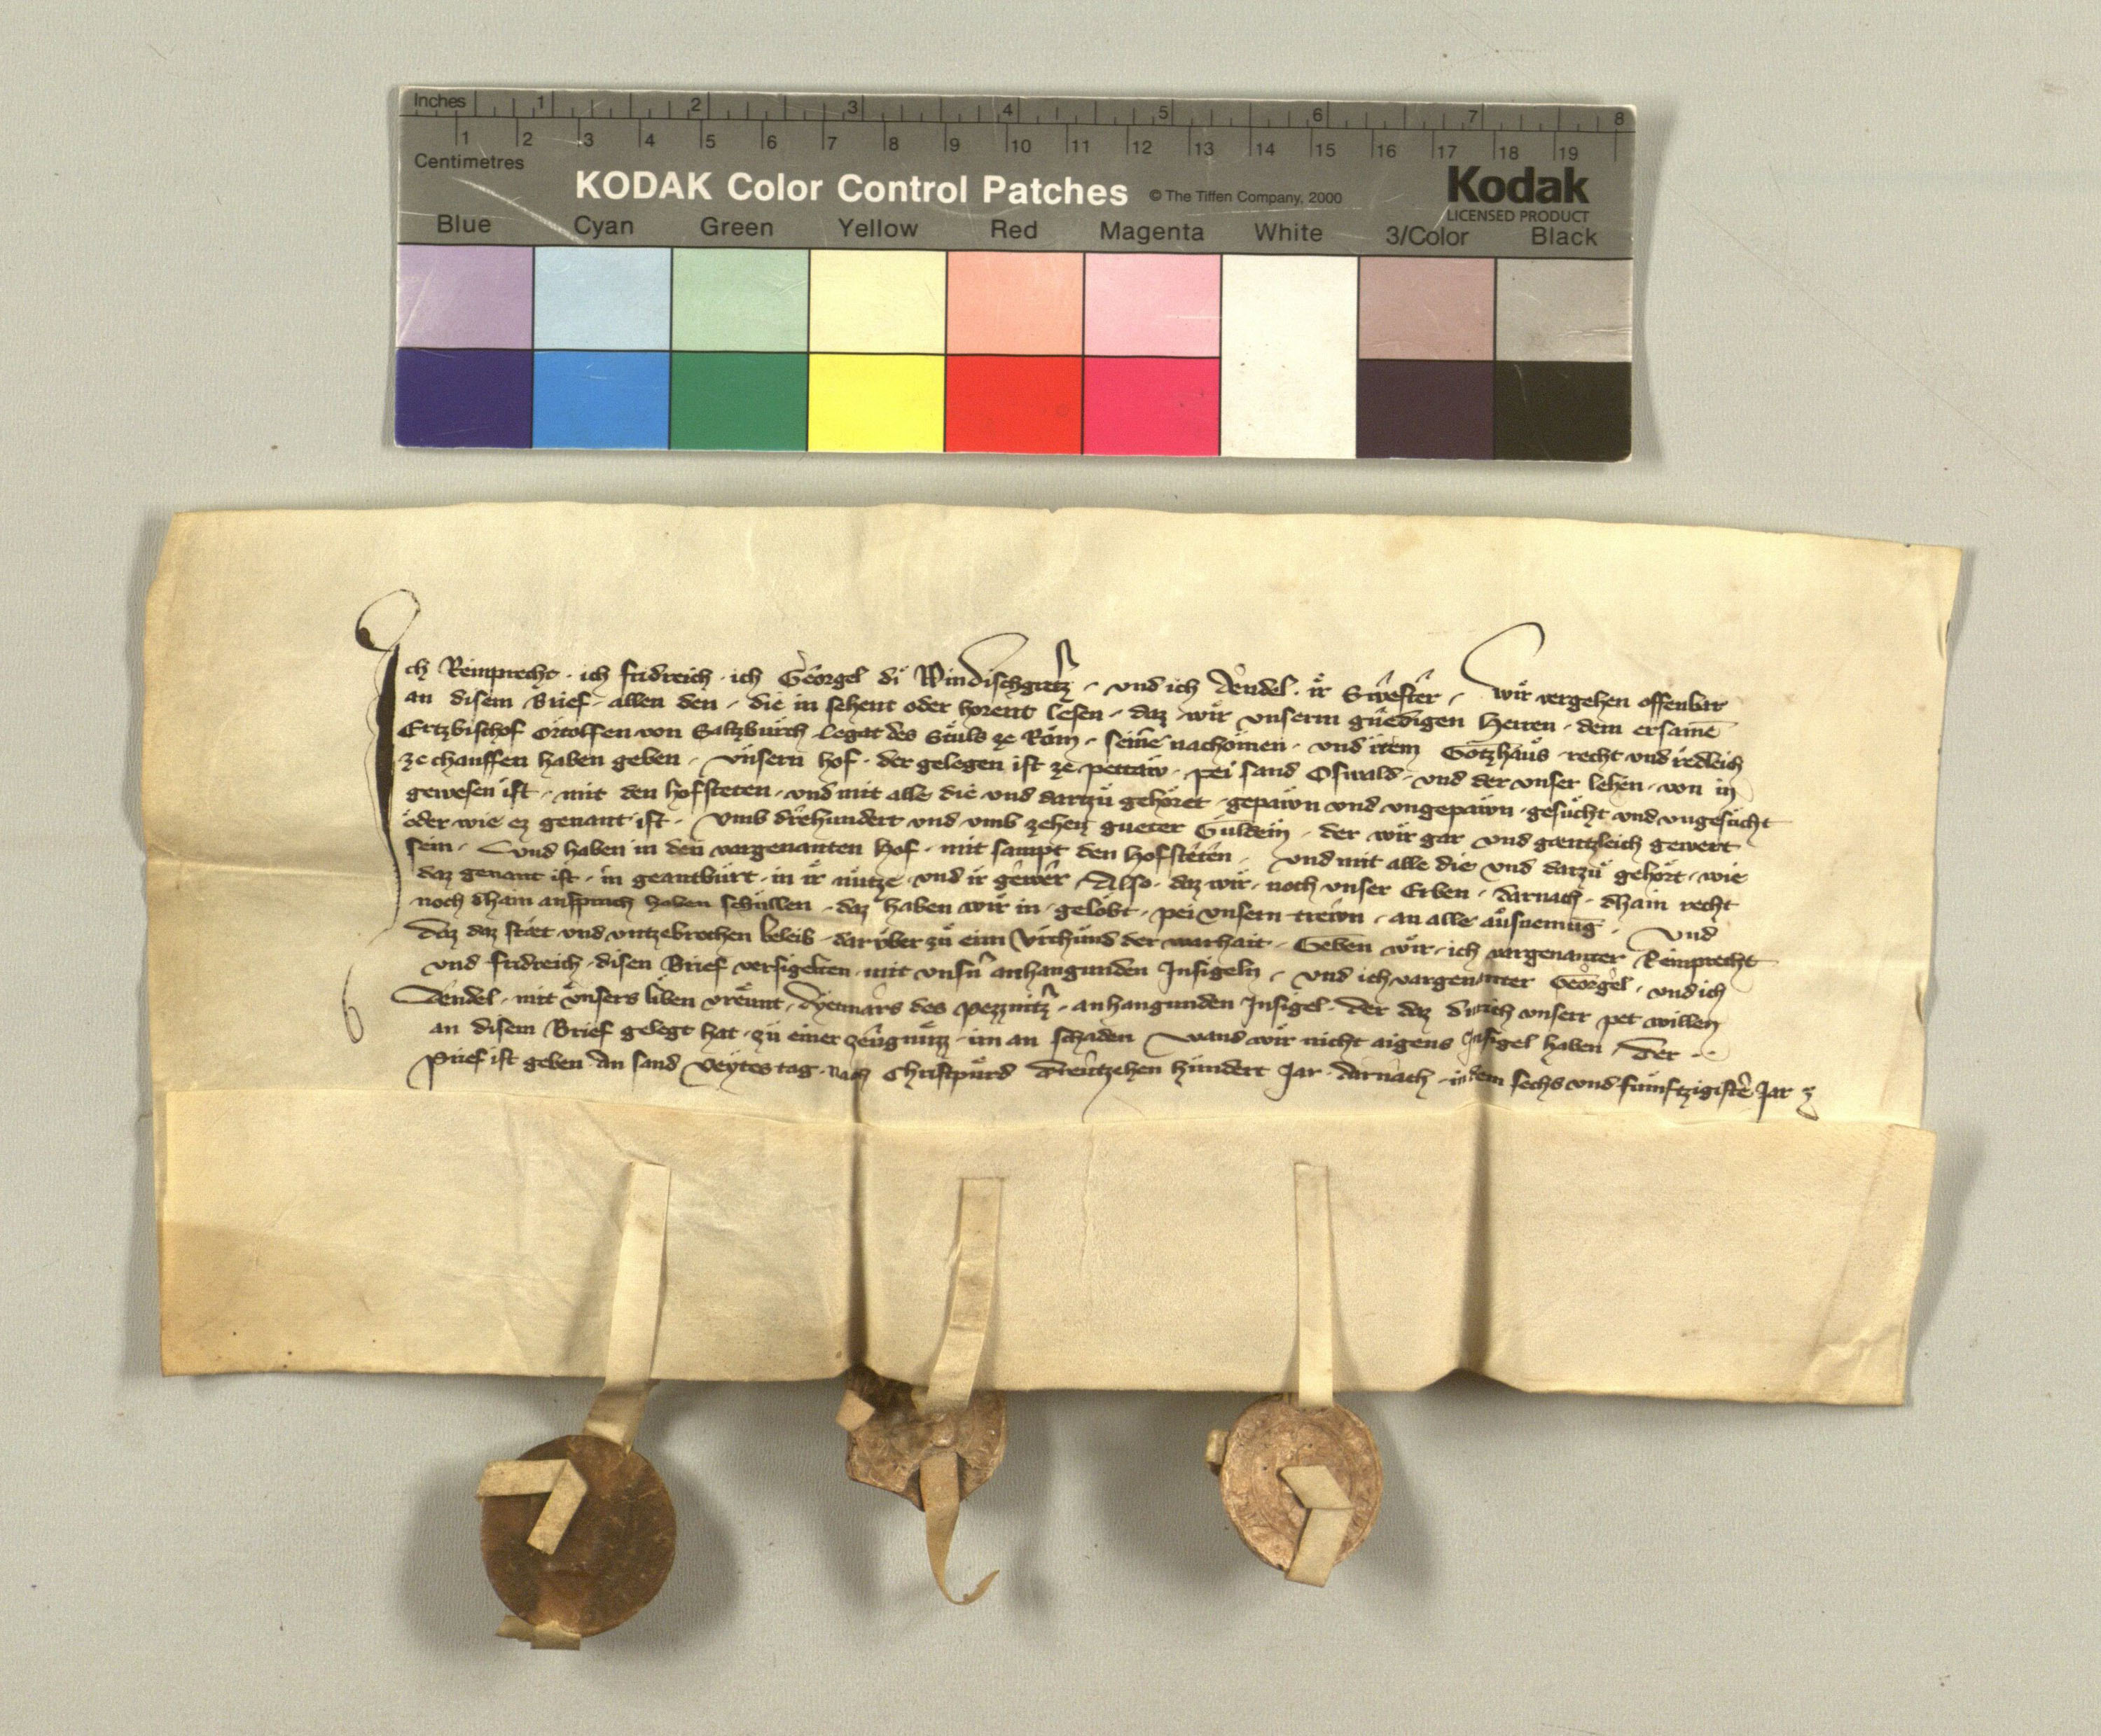 Inches 1 2 3 4 5 6 7 8
1 2 3 4 5 6 7 8 9 10 11 12 13 14 15 16 17 18 19
Centimetres
KODAK Color Control Patches © The Tiffen Company, 2000 Kodak
LICENSED PRODUCT
Blue Cyan Green Yellow Red Magenta White 3/Color Black
Ich Reimprecht · ich fridreich · ich Geörgel di Windischgretzer · und ich Dendel · ir Swester · wir vergehen offenbar
an disem Brief · allen den · die in sehent oder horent lesen · daz wir unserm gnedigen Herren · dem ersamē
Ertzbischof Ortolfen von Saltzburch Legat des Stuls ze Rom · seinē nachomen · und irem Gotzhaus recht und redleich
ze chauffen haben geben · unsern hof · der gelegen ist ze pettaw · pei sand Oswald · und der unser lehen · von in
gewesen ist · mit den hofsteten · und mit alle die und dartzu gehoret · gepawn und ungepawn · gesucht und ungesucht
oder wie ez genant ist · umb drehundert und umb zehen gueter Guldein · der wir gar und gaentzleich gewert
sein · Und haben in den vargenanten hof · mit sampt den hofsteten · und mit alle die und darzu gehört · wie
daz genant ist · in geantburt · in ir nutze · und ir gewer · Also · daz wir · noch unser Erben · darnach · dhain recht
noch dhain anspruch haben schullen · daz haben wir in · gelobt · pei unsern trewn · an alle ausnemūg · Und
daz daz staet und untzebrochen beleib · daruber zu eim Urchund der warhait · Geben wir · ich vargenanter Reimprecht
und fridreich · disen Brief versigelten · mit unsn̄ anhangunden Insigeln · und ich vargenanter Georgel · und ich
Dendel · mit unsers liben vreunt · Dyetmars des pezznitzer · anhangunden Insigel · der daz durich unserr pet willen
an disem Brief gelegt hat · zu einer zeugnuzz · im an schaden wand wir nicht aigens Insigel haben · der
Prief ist geben · An sand Veytes tag · nach Christpurd dreutzehen hundert Jar · darnach · in dem sechs und fumftzigistē Jar